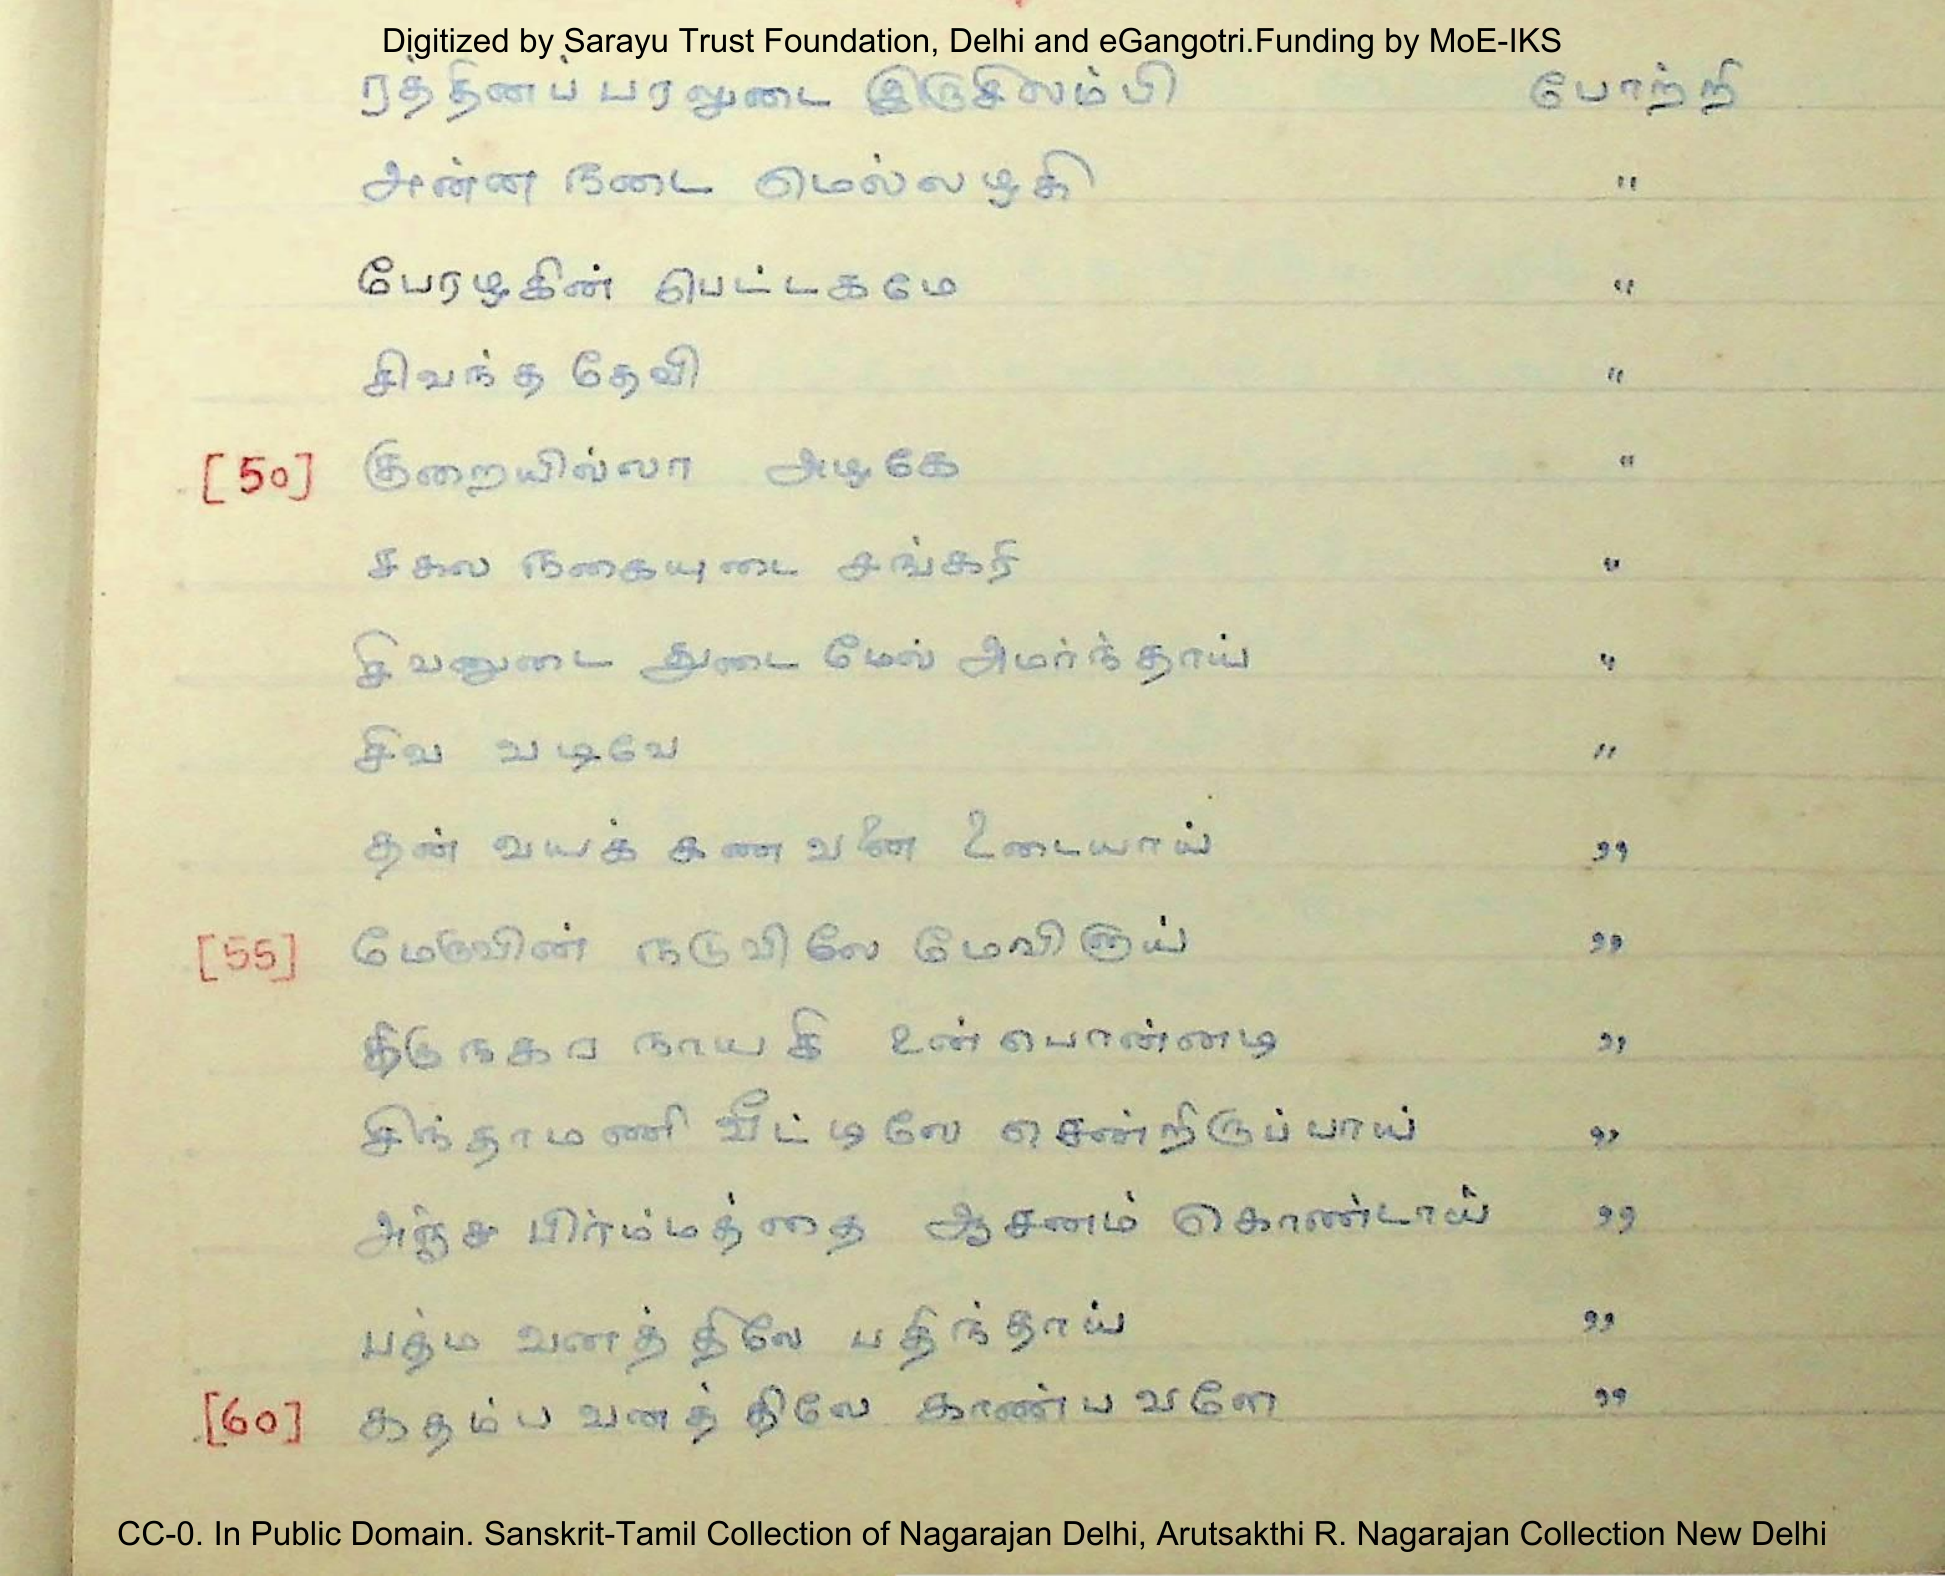 Digitized by Sarayu Trust Foundation, Delhi and eGangotri.Funding by MoE-IKS
ரத்தினப் பரலுடை இருசிலம்பி போற்றி
அன்ன நடை மெல்லழகி "
பேரழகின் பெட்டகமே "
சிவந்த தேவி "
[50] குறையில்லா அழகே "
சகல நகையுடை சங்கரி "
சிவனுடை துடை மேல் அமர்ந்தாய் "
சிவ வடிவே "
தன் வயக் கணவனை உடையாய் "
[55] மேருவின் நடுவிலே மேவினாய் "
திருநகர நாயகி உன் பொன்னடி "
சிந்தாமணி வீட்டிலே சென்றிருப்பாய் "
அஞ்சு பிர்ம்மத்தை ஆசனம் கொண்டாய் "
பத்ம வனத்திலே பதிந்தாய் "
[60] கதம்ப வனத்திலே காண்பவளே "
CC-0. In Public Domain. Sanskrit-Tamil Collection of Nagarajan Delhi, Arutsakthi R. Nagarajan Collection New Delhi